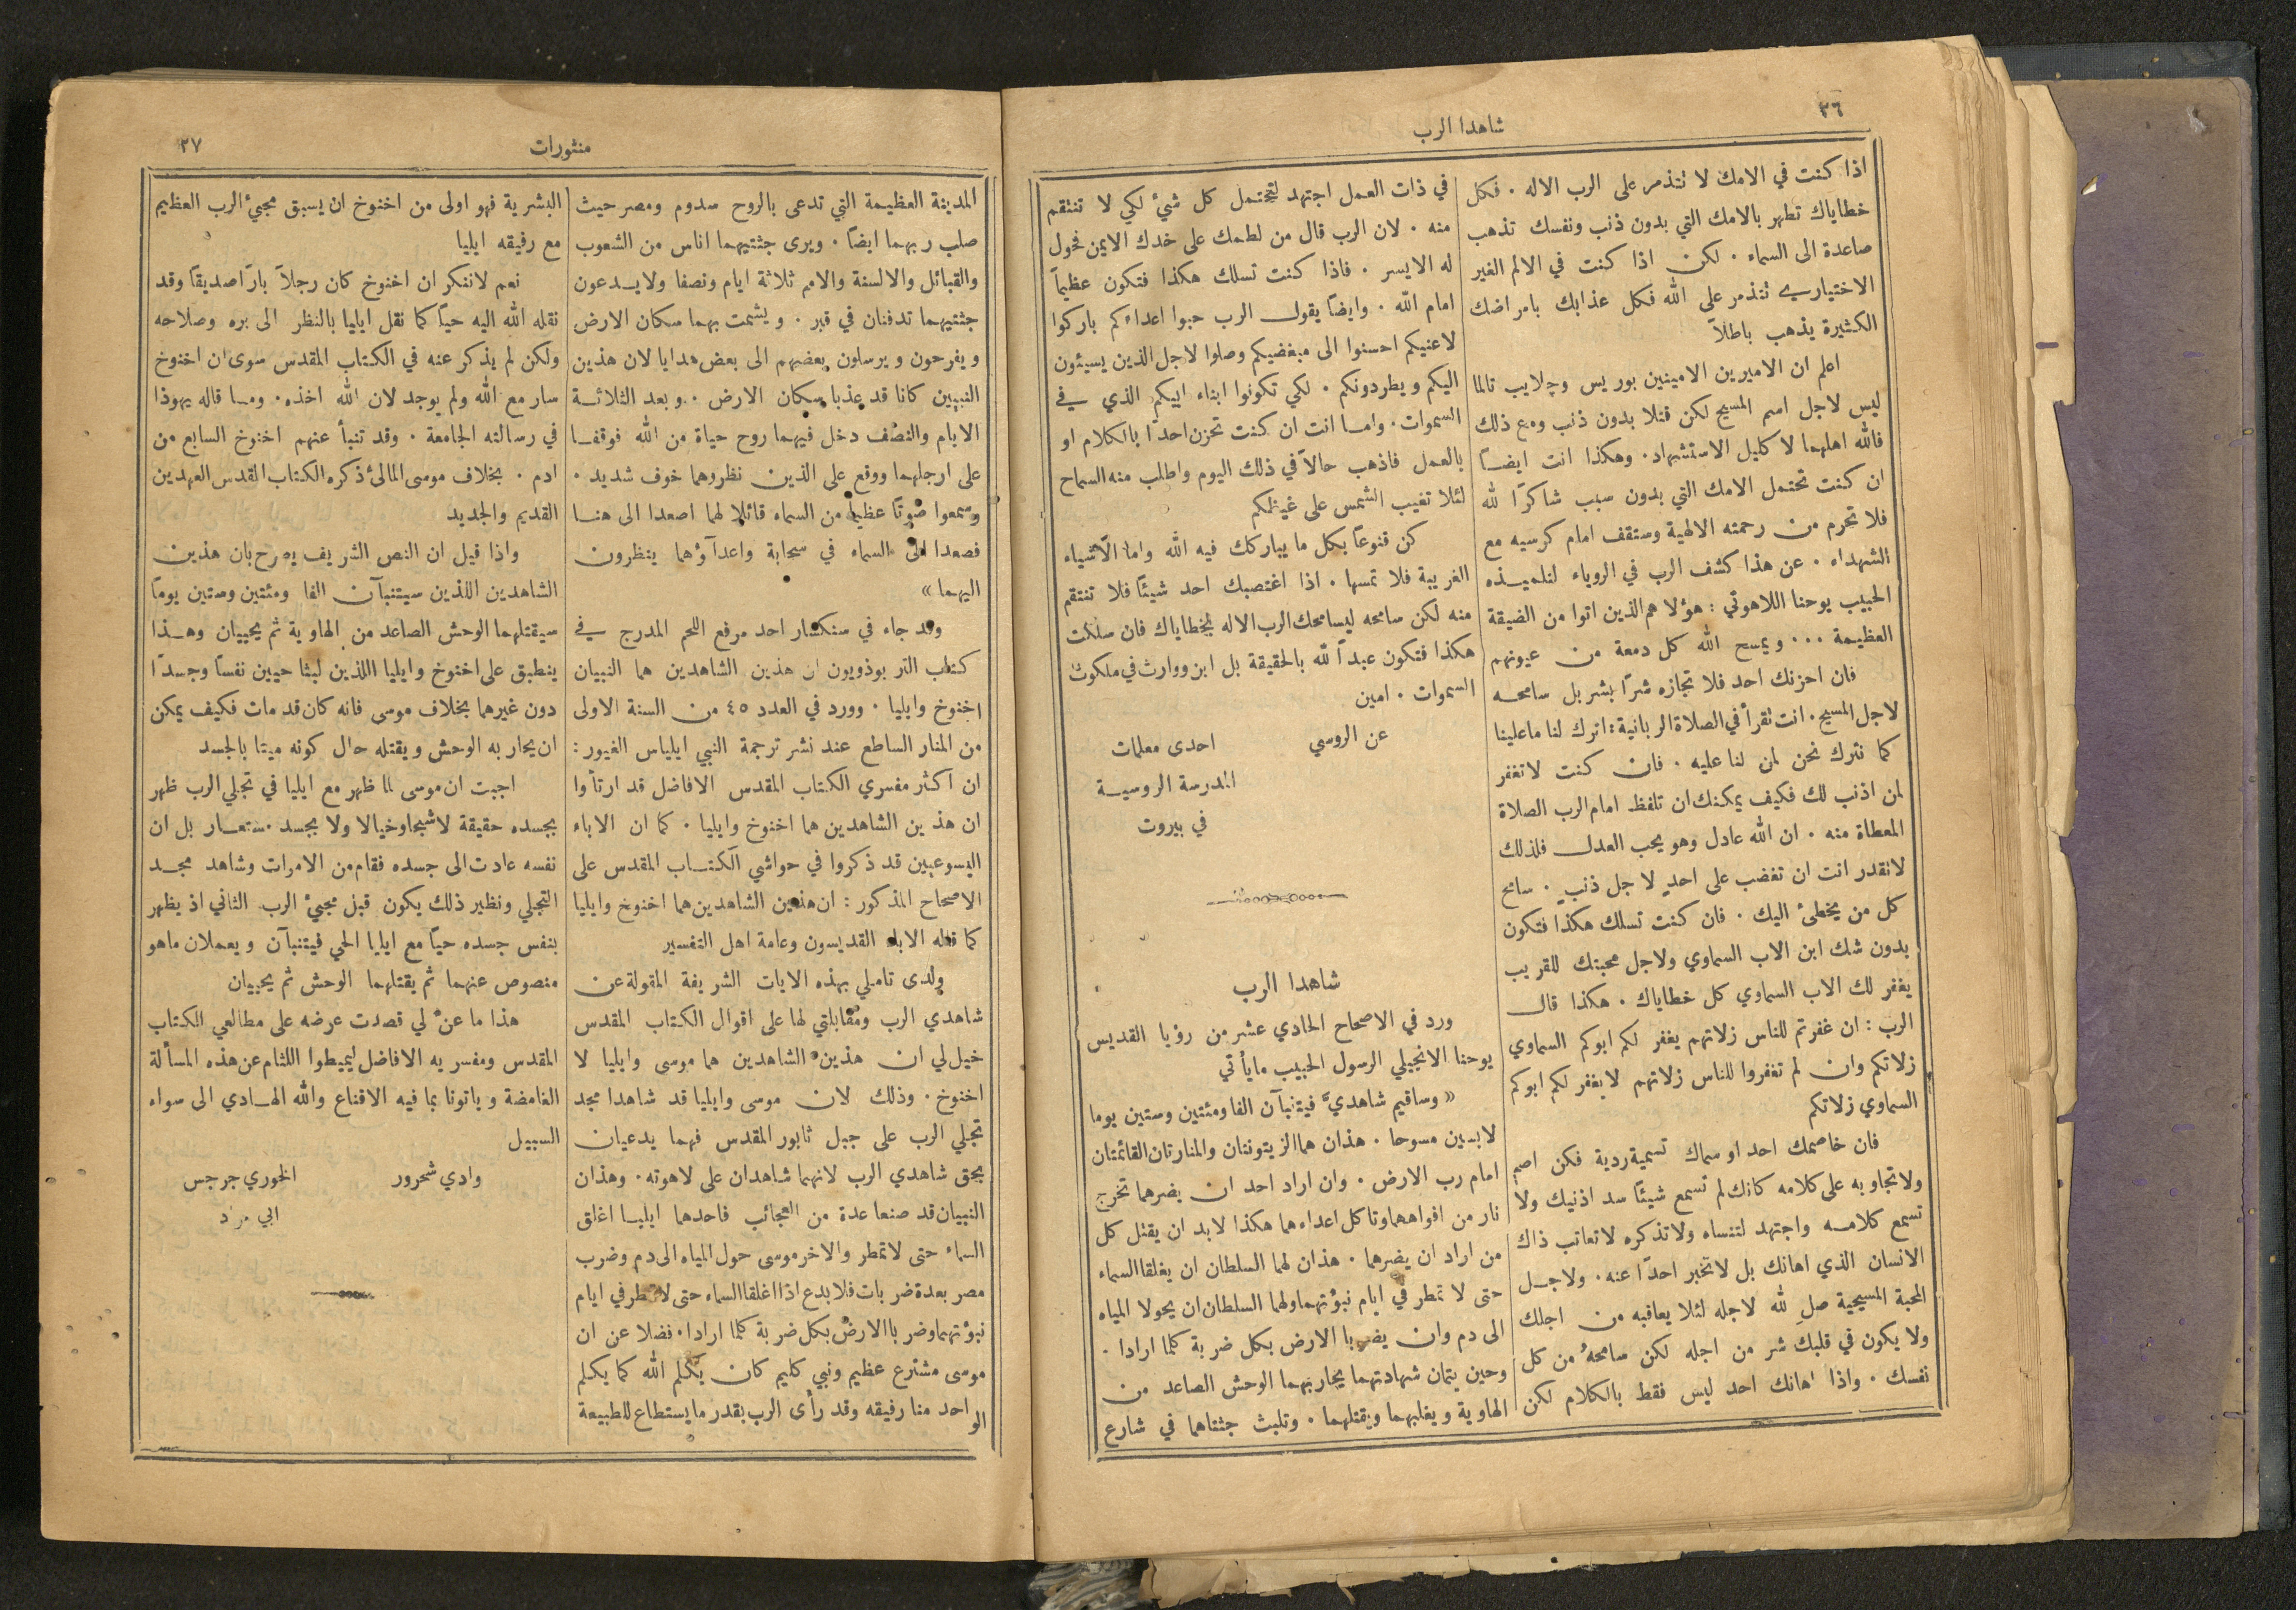 ٣٦
شاهدا الرب
اذا كنت في الامك لا تتذمر على الرب الاله . فكل
خطاياك تطهر بالامك التي بدون ذنب ونفسك تذهب
صاعدة الى السماء . لكن اذا كنت في الالم الغير
الاختياري تتذمر على الله فكل عذابك بامراضك
الكثيرة يذهب باطلاً
اعلم ان الاميرين الامينين بوريس وچلايب تالما
ليس لاجل اسم المسيح لكن قتلا بدون ذنب ومع ذلك
فالله اهلهما لاكليل الاستشهاد . وهكذا انت ايضاً
ان كنت تحتمل الامك التي بدون سبب شاكرًا لله
فلا تحرم من رحمته الالهية وستقف امام كرسيه مع
الشهداء . عن هذا كشف الرب في الروياء لتلميذه
الحبيب يوحنا اللاهوتي : هؤلا هم الذين اتوا من الضيقة
العظيمة ... ويمسح الله كل دمعة من عيونهم
فان احزنك احد فلا تجازه شرًا بشر بل سامحه
لاجل المسيح . انت تقرأ في الصلاة الربانية : اترك لنا ما علينا
كما نترك نحن لمن لنا عليه . فان كنت لا تغفر
لمن اذنب لك فكيف يمكنك ان تلفظ امام الرب الصلاة
المعطاة منه . ان الله عادل وهو يحب العدل فلذلك
لا تقدر انت ان تغضب على احدٍ لاجل ذنبٍ . سامح
كل من يخطئ اليك . فان كنت تسلك هكذا فتكون
بدون شك ابن الاب السماوي ولاجل محبتك للقريب
يغفر لك الاب السماوي كل خطاياك . هكذا قال
الرب : ان غفرتم للناس زلاتهم يغفر لكم ابوكم السماوي
زلاتكم وان لم تغفروا للناس زلاتهم لا يغفر لكم ابوكم
السماوي زلاتكم
فان خاصمك احد او سماك تسمية ردية فكن اصم
ولا تجاوبه على كلامه كانك لم تسمع شيئًا سد اذنيك ولا
تسمع كلامه واجتهد لتنساه ولا تذكره لا تعاتب ذاك
الانسان الذي اهانك بل لا تخبر احدًا عنه . ولاجل
المحبة المسيحية صلِ لله لاجله لئلا يعاقبه من اجلك
ولا يكون في قلبك شر من اجله لكن سامحهُ من كل
نفسك . واذا اهانك احد ليس فقط بالكلام لكن
في ذات العمل اجتهد لتحتمل كل شيءٍ لكي لا تنتقم
منه . لان الرب قال من لطمك على خدك الايمن فحول
له الايسر . فاذا كنت تسلك هكذا فتكون عظيماً
امام الله . وايضاً يقول الرب حبوا اعداءكم باركوا
لاعنيكم احسنوا الى مبغضيكم وصلوا لاجل الذين يسيئون
اليكم ويطردونكم . لكي تكونوا ابناء ابيكم الذي في
السموات . واما انت ان كنت تحزن احدًا بالكلام او
بالعمل فاذهب حالاً في ذلك اليوم واطلب منه السماح
لئلا تغيب الشمس على غيظكم
كن قنوعًا بكل ما يباركك فيه الله واما الاشياء
الغريبة فلا تمسها . اذا اغتصبك احد شيئًا فلا تنتقم
منه لكن سامحه ليسامحك الرب الاله بخطاياك فان سلكت
هكذا فتكون عبدًا لله بالحقيقة بل ابن ووارث في ملكوت
السموات . امين
عن الروسي
احدى معلمات
المدرسة الروسية
في بيروت
شاهدا الرب
ورد في الاصحاح الحادي عشر من رؤيا القديس
يوحنا الانجيلي الرسول الحبيب ما يأتي
« وساقيم شاهديَّ فيتنبآن الفا ومئتين وستين يوما
لابسين مسوحا . هذان هما الزيتونتان والمنارتان القائمتان
امام رب الارض . وان اراد احد ان يضرهما تخرج
نار من افواههما وتاكل اعداءهما هكذا لا بد ان يقتل كل
من اراد ان يضرهما . هذان لهما السلطان ان يغلقا السماء
حتى لا تمطر في ايام نبؤتهما ولهما السلطان ان يحولا المياه
الى دم وان يضربا الارض بكل ضربة كلما ارادا .
وحين يتمان شهادتهما يحاربهما الوحش الصاعد من
الهاوية ويغلبهما ويقتلهما . وتلبث جثتاهما في شارع
منثورات
٣٧
المدينة العظيمة التي تدعى بالروح سدوم ومصر حيث
صلب ربهما ايضاً . ويرى جثتيهما اناس من الشعوب
والقبائل والالسنة والامم ثلاثة ايام ونصفا ولا يدعون
جثتيهما تدفنان في قبر . ويشمت بهما سكان الارض
ويفرحون ويرسلون بعضهم الى بعض هدايا لان هذين
النبيين كانا قد عذبا سكان الارض . وبعد الثلاثة
الايام والنصف دخل فيهما روح حياة من الله فوقفا
على ارجلهما ووقع على الذين نظروهما خوف شديد .
وسمعوا صوتًا عظيما من السماء قائلا لهما اصعدا الى هنا
فصعدا الى السماء في سحابة واعدآؤهما ينظرون
اليهما »
وقد جاء في سنكسار احد مرفع اللحم المدرج في
كتاب التربوذويون ان هذين الشاهدين هما النبيان
اخنوخ وايليا . وورد في العدد ٤٥ من السنة الاولى
من المنار الساطع عند نشر ترجمة النبي ايلياس الغيور :
ان اكثر مفسري الكتاب المقدس الافاضل قد ارتأوا
ان هذين الشاهدين هما اخنوخ وايليا . كما ان الاباء
اليسوعيين قد ذكروا في حواشي الكتاب المقدس على
الاصحاح المذكور : ان هذين الشاهدين هما اخنوخ وايليا
كما نقله الاباء القديسون وعامة اهل التفسير
ولدى تاملي بهذه الايات الشريفة المقولة عن
شاهدي الرب ومقابلتي لها على اقوال الكتاب المقدس
خيل لي ان هذين الشاهدين هما موسى وايليا لا
اخنوخ . وذلك لان موسى وايليا قد شاهدا مجد
تجلي الرب على جبل ثابور المقدس فهما يدعيان
بحق شاهدي الرب لانهما شاهدان على لاهوته . وهذان
النبيان قد صنعا عدة من العجائب فاحدهما ايليا اغلق
السماء حتى لا تمطر والاخر موسى حول المياه الى دم وضرب
مصر بعدة ضربات فلا بدع اذا اغلقا السماء حتى لا تمطر في ايام
نبؤتهما وضربا الارض بكل ضربة كلما ارادا . فضلا عن ان
موسى مشترع عظيم ونبي كليم كان يكلم الله كما يكلم
الواحد منا رفيقه وقد رأى الرب بقدر ما يستطاع للطبيعة
البشرية فهو اولى من اخنوخ ان يسبق مجيئ الرب العظيم
مع رفيقه ايليا
نعم لا ننكر ان اخنوخ كان رجلاً بارًا صديقًا وقد
نقله الله اليه حيًا كما نقل ايليا بالنظر الى بره وصلاحه
ولكن لم يذكر عنه في الكتاب المقدس سوى ان اخنوخ
سار مع الله ولم يوجد لان الله اخذه . وما قاله يهوذا
في رسالته الجامعة . وقد تنبأ عنهم اخنوخ السابع من
ادم . بخلاف موسى المالئ ذكره الكتاب المقدس العهدين
القديم والجديد
واذا قيل ان النص الشريف يصرح بان هذين
الشاهدين اللذين سيتنبآن الفا ومئتين وستين يوماً
سيقتلهما الوحش الصاعد من الهاوية ثم يحييان وهذا
ينطبق على اخنوخ وايليا اللذين لبثا حيين نفسًا وجسدًا
دون غيرهما بخلاف موسى فانه كان قد مات فكيف يمكن
ان يحاربه الوحش ويقتله حال كونه ميتا بالجسد
اجبت ان موسى لما ظهر مع ايليا في تجلي الرب ظهر
بجسده حقيقة لا شبحا وخيالا ولا بجسد مستعار بل ان
نفسه عادت الى جسده فقام من الاموات وشاهد مجد
التجلي ونظير ذلك يكون قبل مجيئ الرب الثاني اذ يظهر
بنفس جسده حيًا مع ايليا الحي فيتنبآن ويعملان ما هو
منصوص عنهما ثم يقتلهما الوحش ثم يحييان
هذا ما عنَّ لي قصدت عرضه على مطالعي الكتاب
المقدس ومفسريه الافاضل ليميطوا اللثام عن هذه المسألة
الغامضة وياتونا بما فيه الاقناع والله الهادي الى سواء
السبيل
وادي شحرور
الخوري جرجس
ابي مراد